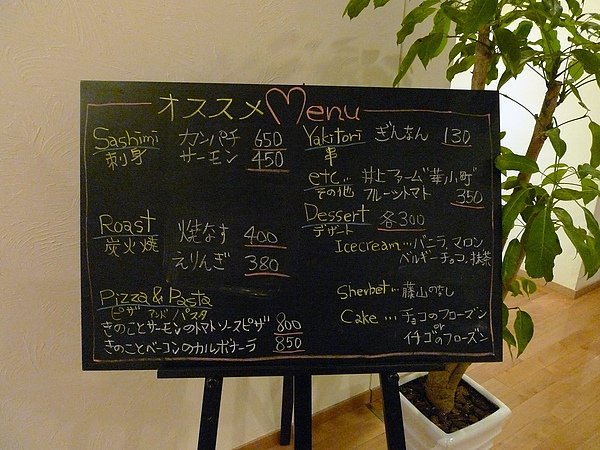 オススメMenu
Sashimi カンパチ 650
刺身 サーモン 450
Roast 焼なす 400
炭火焼 えりんぎ 380
Pizza & Pasta
ピザ アンド パスタ
きのことサーモンのトマトソースピザ 800
きのことベーコンのカルボナーラ 850
Yakitori ぎんなん 130
串
etc... 井上ファーム"華小町"
その他 フルーツトマト 350
Dessert 各300
デザート
Icecream...バニラ、マロン
ベルギーチョコ、抹茶
Sherbet... 藤山のなし
Cake ... チョコのフローズン
or
イチゴのフローズン